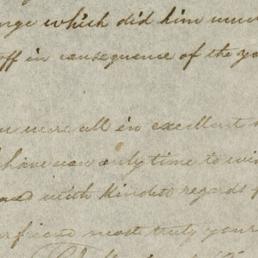 which did him
off in consequence of the
were all in excellent
have now only time to
and with kindest regards
friend most truly your